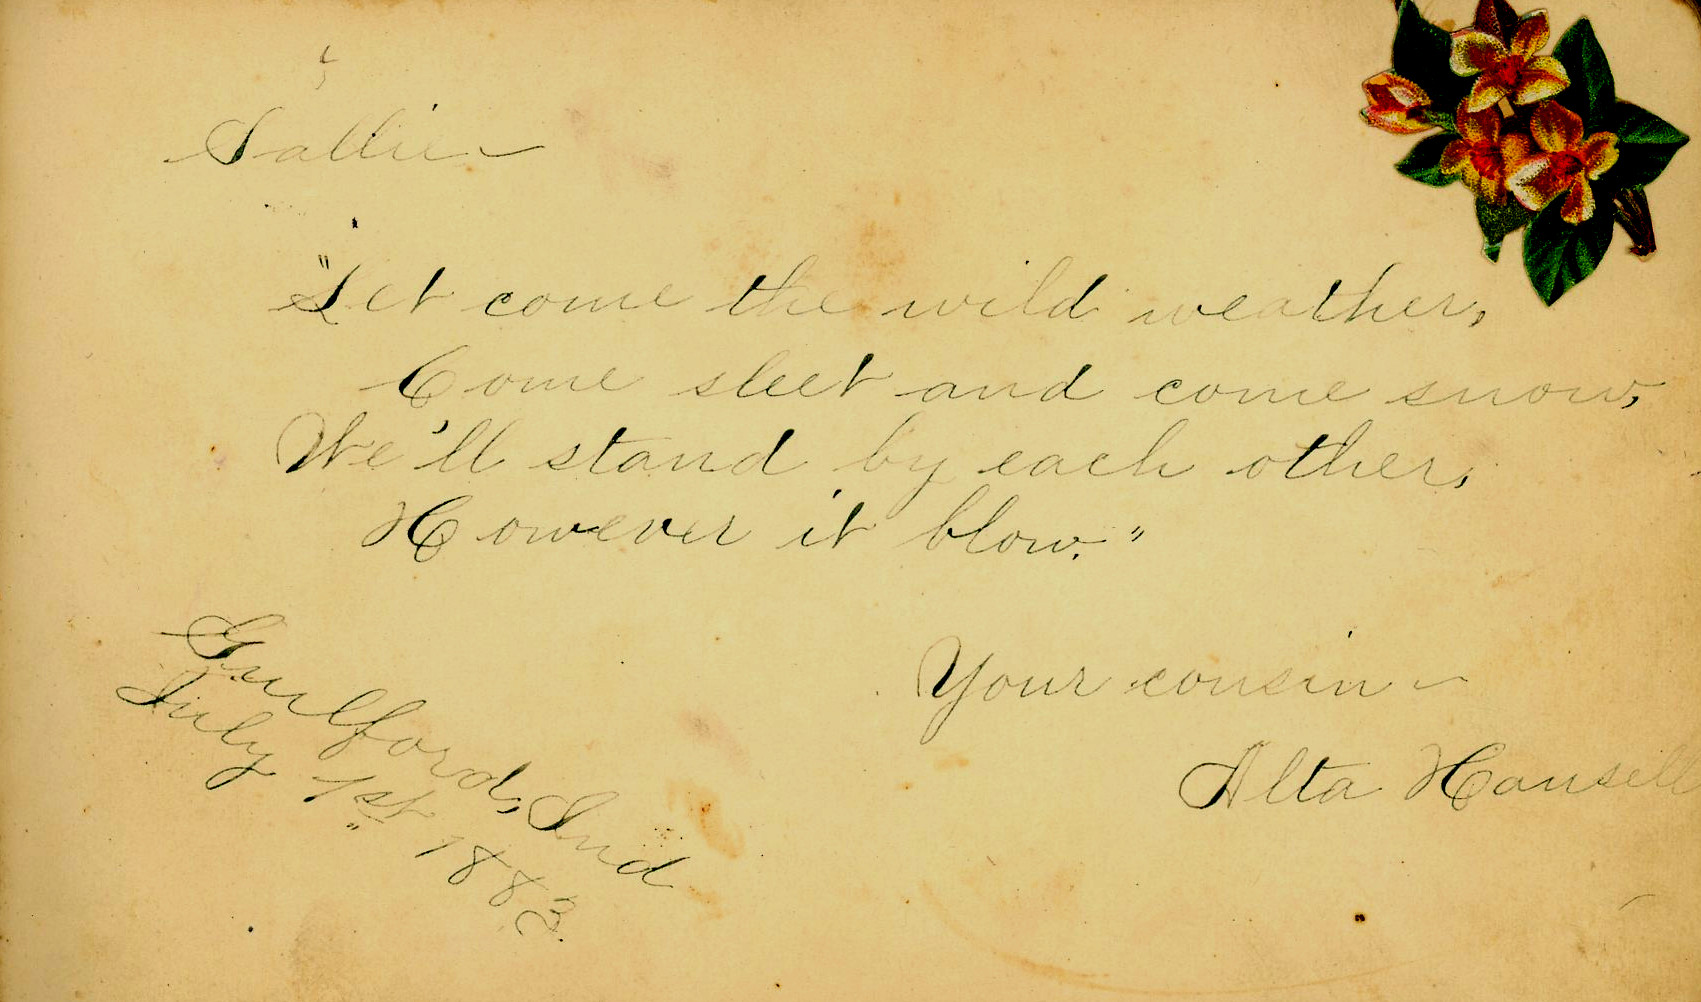 Sallie ~
"Let come the wild weather,
Come sleet and come snow,
We'll stand by each other,
However it blow."
Your cousin ~
Alta Hansell
Guilford, Ind
July 1st 1883.